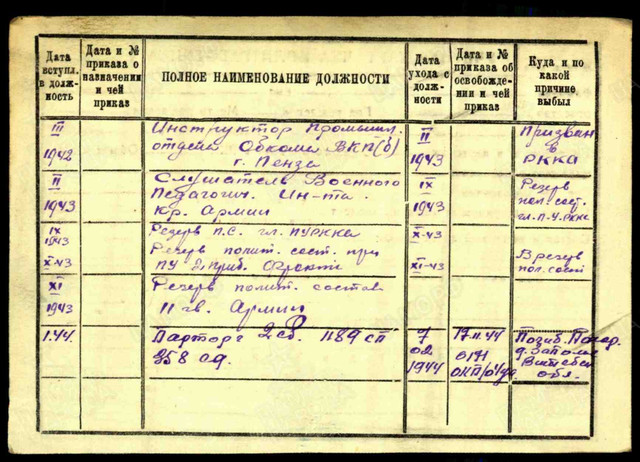 Дата вступл. в должность
Дата и № приказа о назначении и чей приказ
ПОЛНОЕ НАИМЕНОВАНИЕ ДОЛЖНОСТИ
Дата ухода с должности
Дата и № приказа об освобождении и чей приказ
Куда и по какой причине выбыл
III 1942
Инструктор Промышл.
отдела Обкома ВКП(б)
г. Пенза
II 1943
Призван
в
РККА
II 1943
Слушатель Военного
Педагогич. Ин-та.
Кр. Армии
IX 1943
Резерв
пол. сост.
гл. П.У. РККА
IX 1943
Резерв П.С. гл. ПУРККА
X-43
X-43
Резерв полит. сост. при
ПУ 2 Приб. Фронта
XI-43
В резерв
пол. сост
XI 1943
Резерв полит. состава
11 гв. Армии
1.44.
Парторг 2 сб. 1189 сп
358 сд.
7
02
1944
17.11.44
0171
Погиб. Похор.
д. Заполье
Витебск
обл.